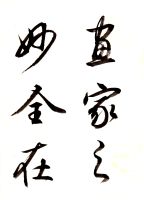 畫家之
妙全在